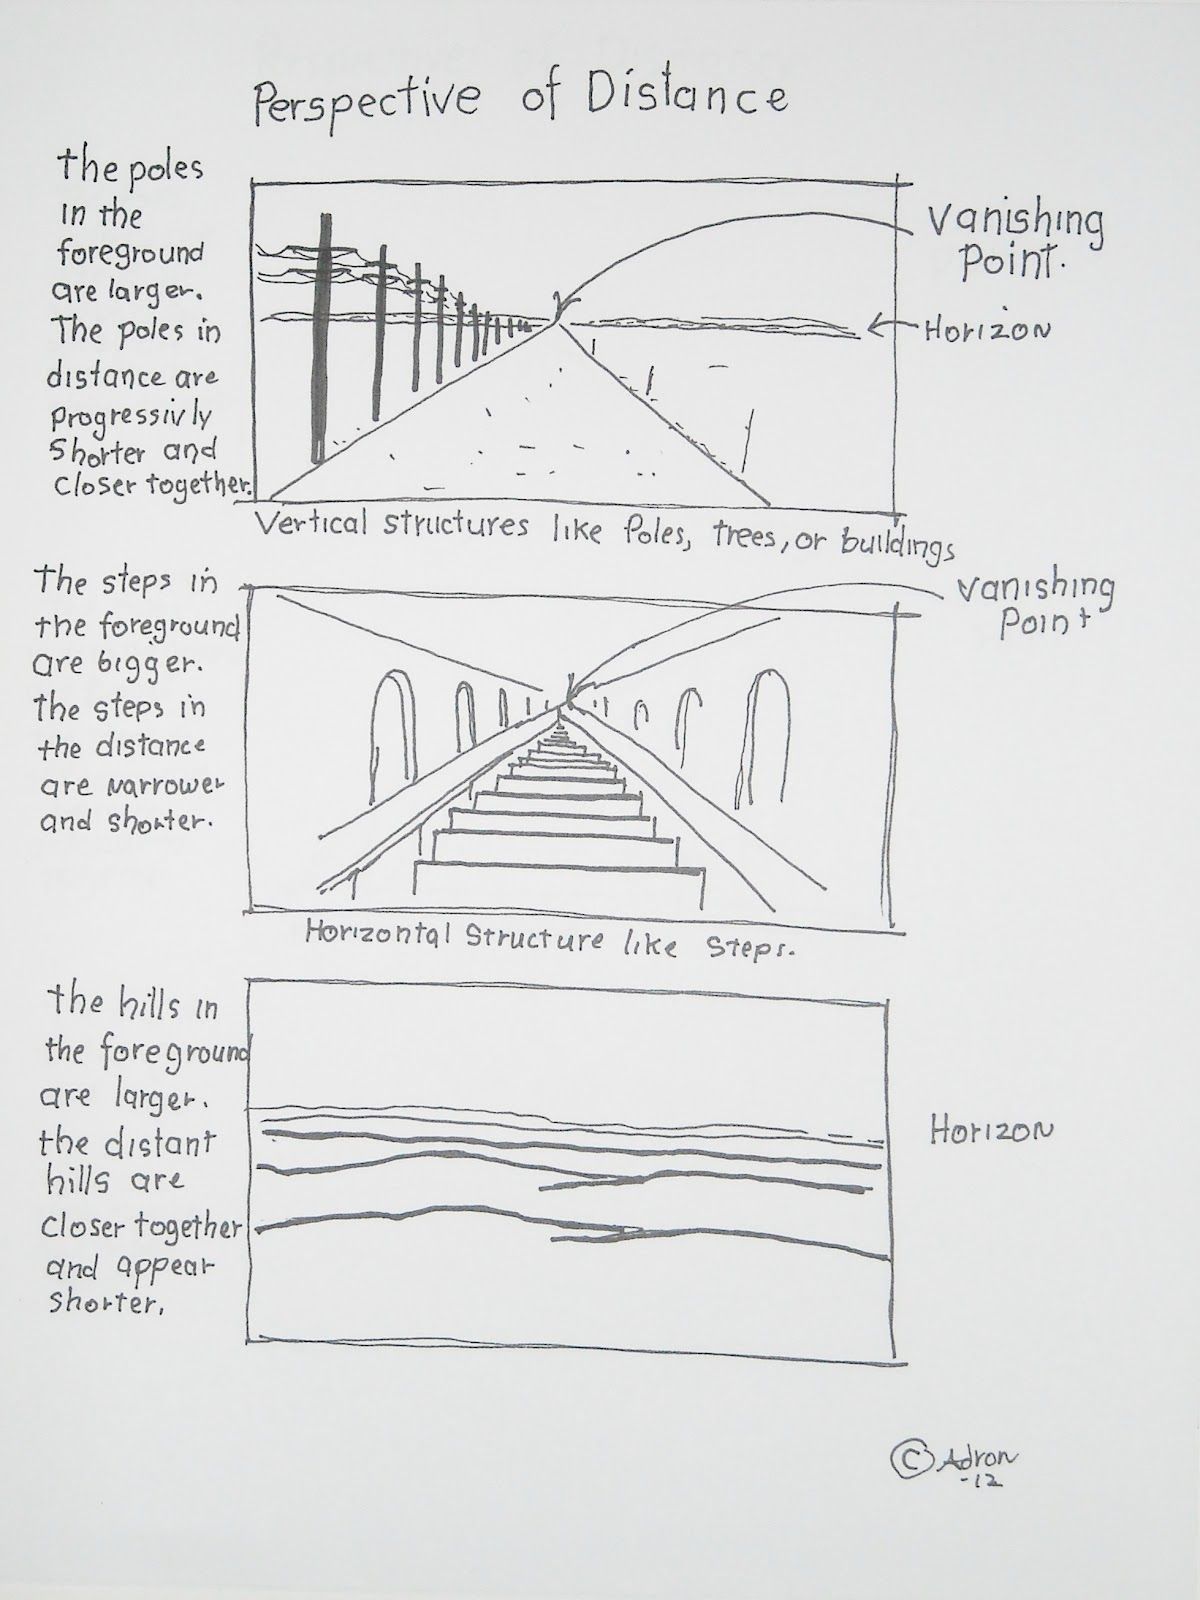 Perspective of Distance
the poles
in the
foreground
are larger.
The poles in
distance are
progressivly
shorter and
closer together.
Vanishing
Point.
Horizon
Vertical structures like Poles, trees, or buildings
The steps in
the foreground
are bigger.
the steps in
the distance
are narrower
and shorter.
Vanishing
Point
Horizontal Structure like Steps.
the hills in
the foreground
are larger.
the distant
hills are
closer together
and appear
shorter.
Horizon
© Adron
-12